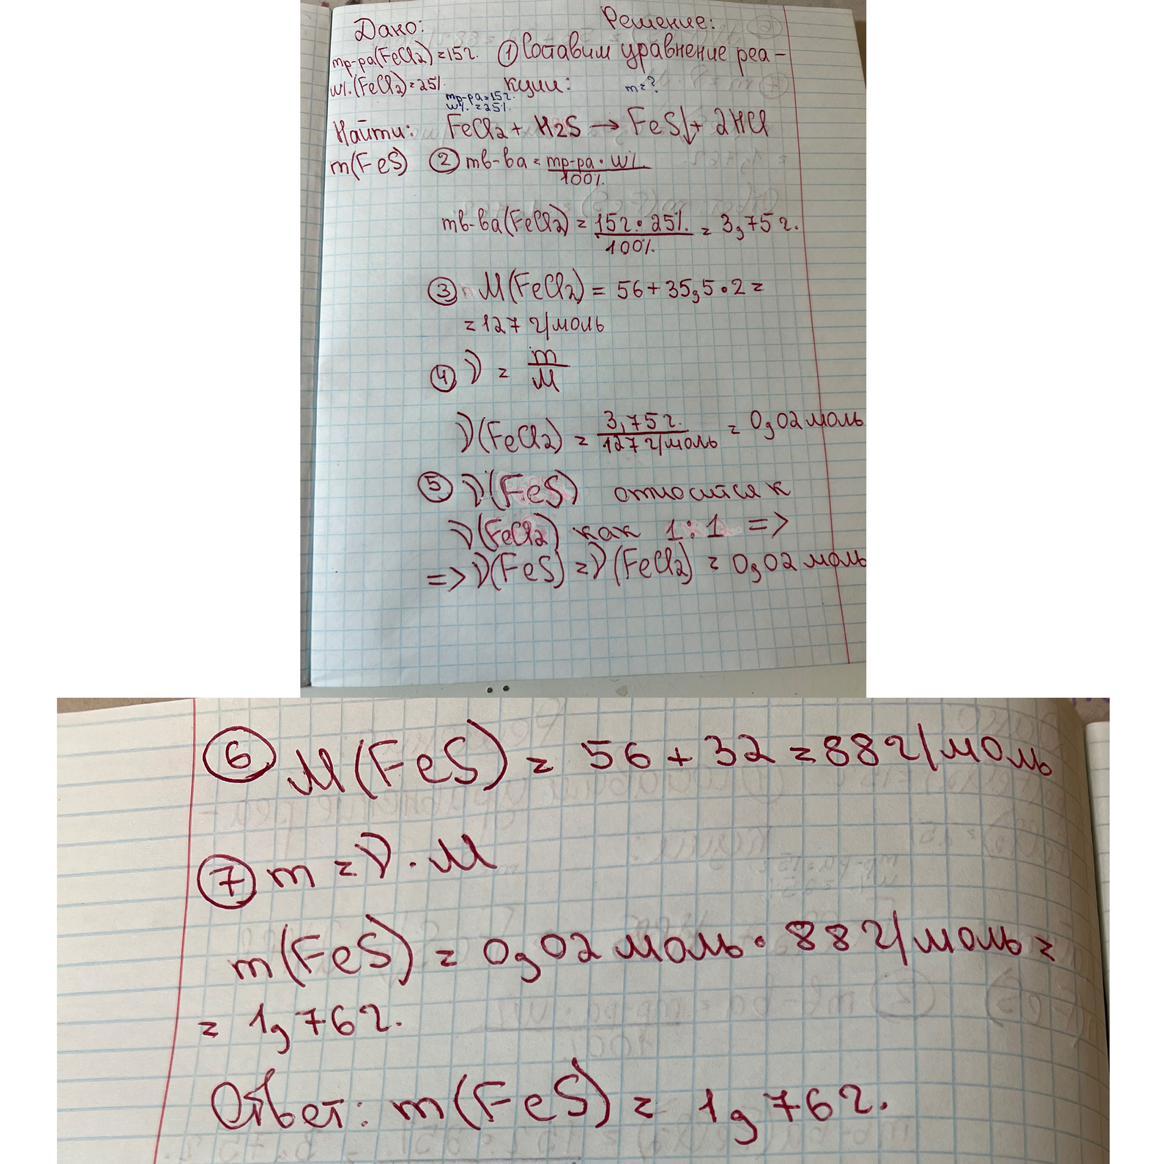 Дано: Решение:
mр-ра(FeCl2)=15г. ① Составим уравнение реа-
W%(FeCl2)=25% кции: m=?
mр-ра=15г.
W%=25%
Найти: FeCl2 + H2S → FeS↓ + 2HCl
m(FeS) ② mв-ва = mр-ра · W% / 100%
mв-ва(FeCl2) = 15г · 25% / 100% = 3,75г.
③ M(FeCl2) = 56 + 35,5 · 2 =
= 127 г/моль
④ ν = m / M
ν(FeCl2) = 3,75г. / 127 г/моль = 0,02 моль
⑤ ν(FeS) относится к
ν(FeCl2) как 1:1 =>
=> ν(FeS) = ν(FeCl2) = 0,02 моль
⑥ M(FeS) = 56 + 32 = 88 г/моль
⑦ m = ν · M
m(FeS) = 0,02 моль · 88 г/моль =
= 1,76г.
Ответ: m(FeS) = 1,76г.